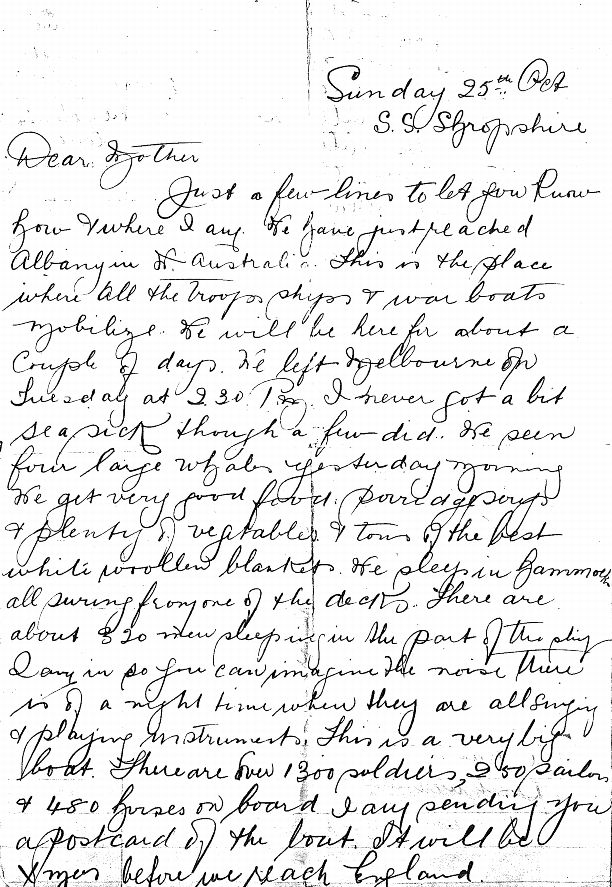 Sunday 25th Oct
S.S. Shropshire
Dear Mother
Just a few lines to let you know
how & where I am. We have just reached
Albany in W. Australia. This is the place
where all the troops ships & war boats
mobilize. We will be here for about a
couple of days. We left Melbourne on
Tuesday at 2.30 Pm. I never got a bit
sea sick though a few did. We seen
four large whales yesterday morning
We get very good food. porridge soup
& plenty of vegatables & tons of the best
white woollen blankets. We sleep in hammock
all swung from one of the decks. There are
about 320 men sleeping in the part of the ship
I am in so you can imagine the noise there
is of a night time when they are all singing
& playing instruments. This is a very big
boat. There are over 1300 soldiers, 250 sailors
& 480 horses on board I am sending you
a postcard of the boat. It will be
Xmas before we reach England.